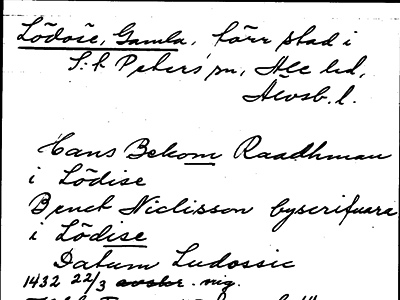 Lödöse, Gamla, förr stad i
S:t Peters sn, Ale hd,
Älvsb. l.
Hans Bekom Raadhman
i Lödise
Benct Niclisson byscrifuara
i Lödise
Datum Ludossie
1432 22/3 avskr. nig.